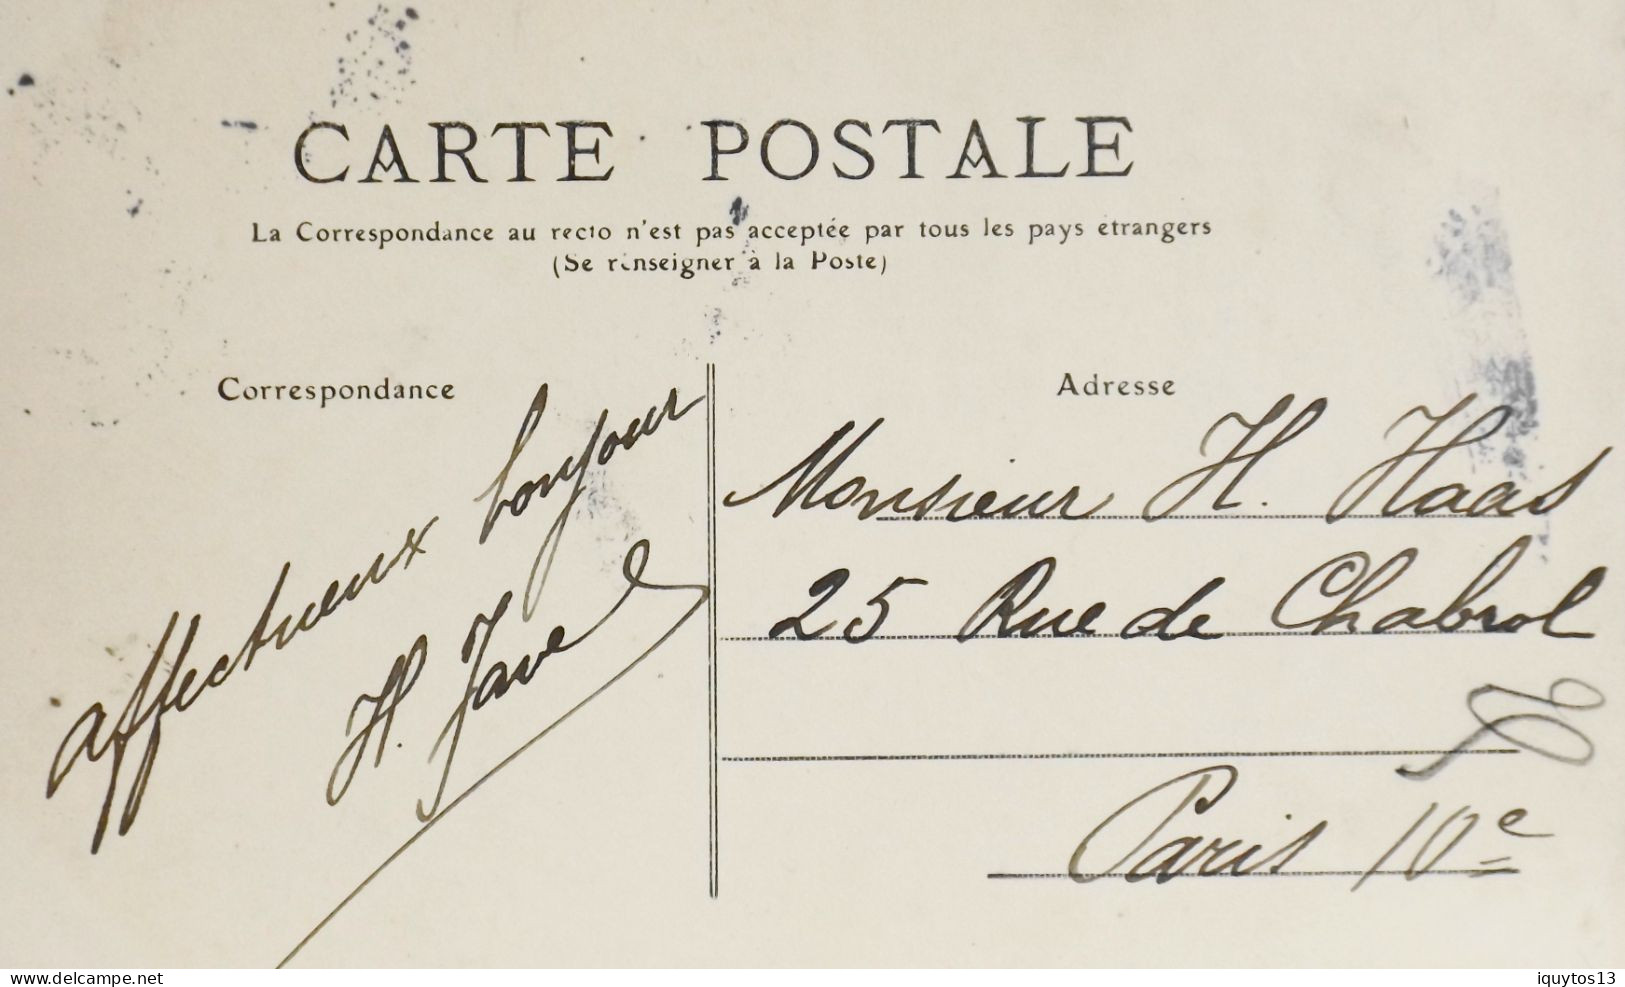 CARTE POSTALE
La Correspondance au recto n'est pas acceptée par tous les pays étrangers
(Se renseigner à la Poste)
Correspondance
affectueux bonjour
H. Javel
Adresse
Monsieur H. Haas
25 Rue de Chabrol
Paris 10e
www.delcampe.net
iquytos13